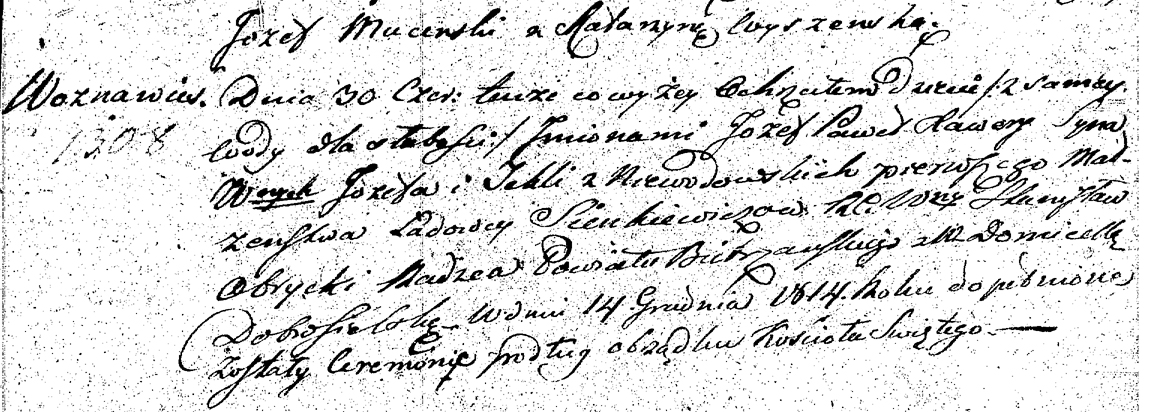 Jozef Mucenski z Katarzyną Wyszenską.
Woznawies. Dnia 30 Czer: tenze co wyzey Ochrzciłem Dziecie /: z samey.
1308 wody dla słabosci :/ Imionami Jozef Paweł Xawery Syna
Jozefa i Tekli z Niewodowskich pierwszego Mał-
zenstwa Sienkiewiczow. R. C. Wny Stanysław
Obrycki Radzca Powiatu Biebrzanskiego z W. Domicellą
Dobosielską. W dniu 14. Grudnia 1814. Roku dopełnione
zostały Ceremonie podług obrządku Koscioła Swiętego.